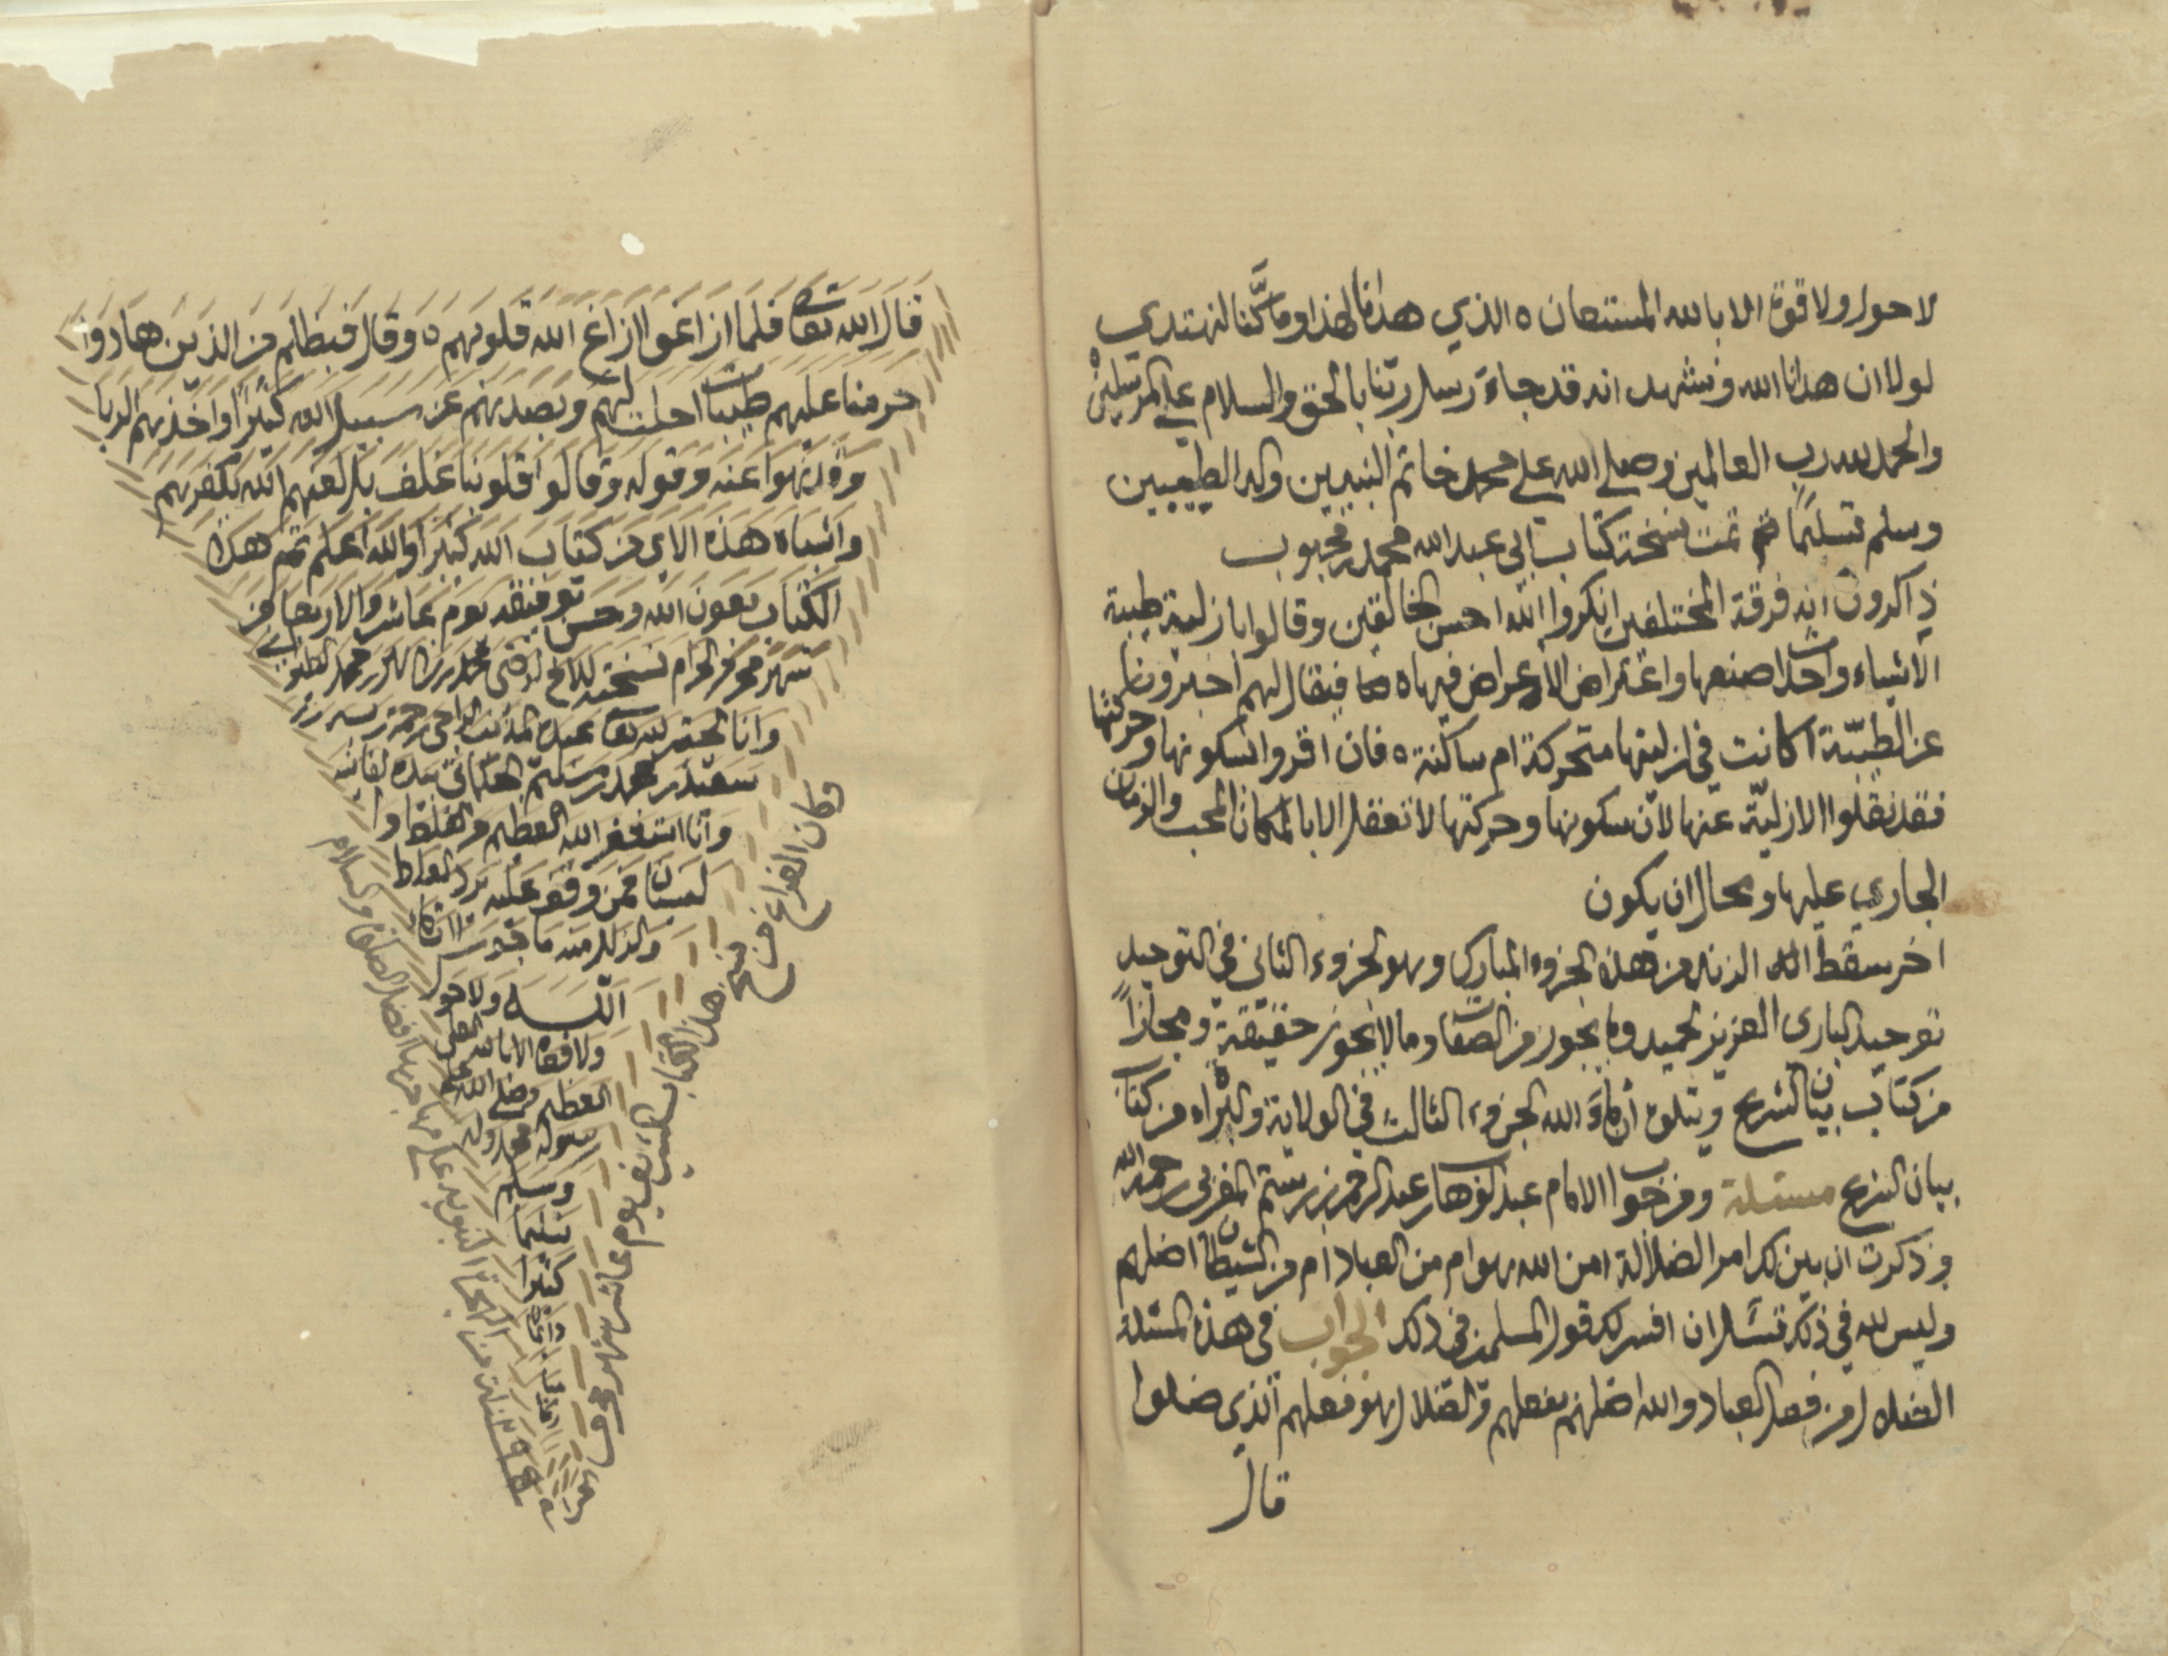 لا حول ولا قوة الا بالله المستعان ه الذي هدانا لهذا وما كنا لنهتدي
لولا ان هدانا الله ونشهد انه قد جاءة رسل ربنا بالحق والسلام علي المرسلين
والحمد لله رب العالمين وصلى الله على محمد خاتم النبيين واله الطيبين
وسلم تسليمًا ثم تمت نسخت كتاب ابي عبد الله محمد بن محبوب
ذاكرون انه فرقة المختلفين انكروا الله احسن الخالقين وقالوا بازلية طيبة
الاشياء واحداث صنعها واعتراض الاعراض فيها ه فيقال لهم اخبرونا
عن الطيبة اكانت في ازليتها متحركة ام ساكنة ه فان اقروا بسكونها وحركتها
فقد نقلوا الازلية عنها لان سكونها وحركتها لا تعقل الا بالمكان والزمان
الجاري عليها ومحال ان يكون
اخر سقط من هذه الجزوء المبارك وهو الجزوء الثاني في التوحيد
توحيد الباري العزيز الحميد وما يجوز من الصفات وما لا يجوز حقيقة ومجازًا
من كتاب بيان الشرع ويتلوه ان شاء الله الجزوء الثالث في الولاية والبراه من كتاب
بيان الشرع مسئلة ومن جواب الامام عبد الوهاب بن عبد الرحمن بن رستم المغربي رحمه الله
وذكرت ان يبين لك امر الضلالة امن الله هو ام من العباد ام من الشيطان اضلهم
وليس لله في ذلك تسئل ان افسر لك قول المسلمين في ذلك الجواب في هذه المسئلة
الضلال من فعل العباد والله اضلهم بفعلهم والضلال هو فعلهم الذي ضلوا
قال
قال الله تعالى فلما ازاغوا ازاغ الله قلوبهم ه وقال فبظلم من الذين هادوا
حرمنا عليهم طيبات احلت لهم وبصدهم عن سبيل الله كثيرًا واخذهم الربا
وقد نهوا عنه وقوله وقالوا قلوبنا غلف بل لعنهم الله بكفرهم
واشباه هذه الاي من كتاب الله كثيرًا والله اعلم تم هذا
الكتاب بعون الله وحسن توفيقه يوم عاشر والاربعا من
شهر محرم الحرام نسخته للاخ
وانا الحقير لله تعالى عبده المذنب الراجي رحمة ربه
سعيد بن
وانا استغفر الله العظيم من الغلط
لبسنا ممن وقف عليه يرد الغلط
والزلل منه
الله ولا حول
ولا قوة الا بالله العلي
العظيم وصلى الله على
رسوله محمد واله
وسلم
تسليما
كثيرا
وكان الفراغ من نسخ هذا الكتاب يوم عاشر شهر محرم
من الهجرة النبويه على مهاجرها افضل الصلاة والسلام